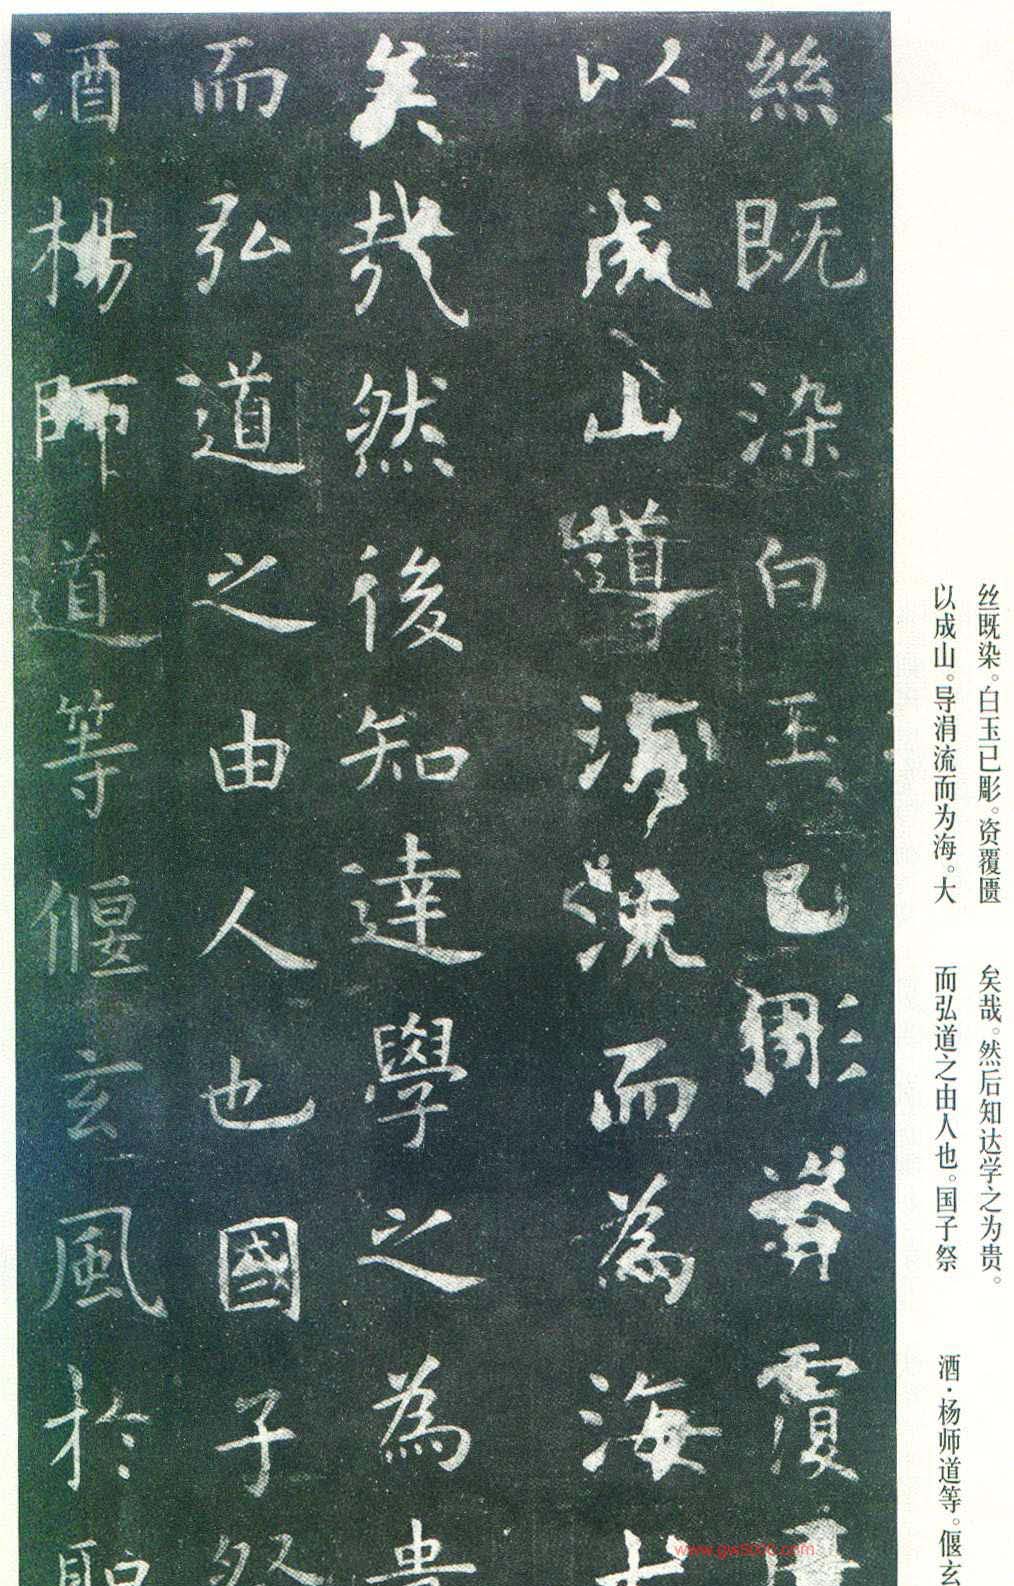 絲既染白玉已彫資覆匱
以成山導涓流而為海大
矣哉然後知達學之為貴
而弘道之由人也國子祭
酒楊師道等偃玄風於聖
丝既染。白玉已彫。资覆匮
以成山。导涓流而为海。大
矣哉。然后知达学之为贵。
而弘道之由人也。国子祭
酒·杨师道等。偃玄